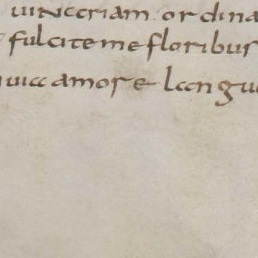 uinariam. ordina
fulcite me floribus
uia amore langu